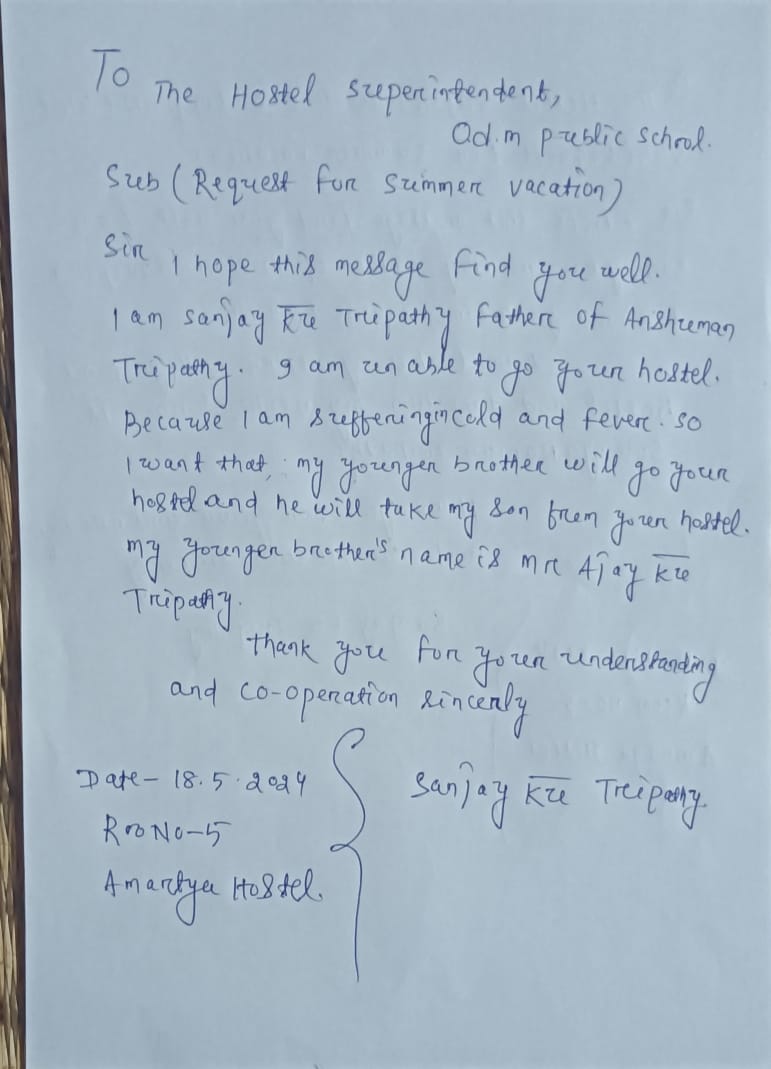 To
The Hostel superintendent,
Od.m public school.
Sub (Request for summer vacation)
Sir
I hope this message find you well.
I am sanjay Ku Tripathy Father of Anshuman
Tripathy. I am un able to go your hostel.
Because I am suffering in cold and fever. so
I want that, my younger brother will go your
hostel and he will take my son from your hostel.
my younger brother's name is mr Ajay Ku
Tripathy.
Thank you for your understanding
and co-operation sincerly
Date- 18.5.2024
Roo No-5
Amartya Hostel.
Sanjay Ku Tripathy